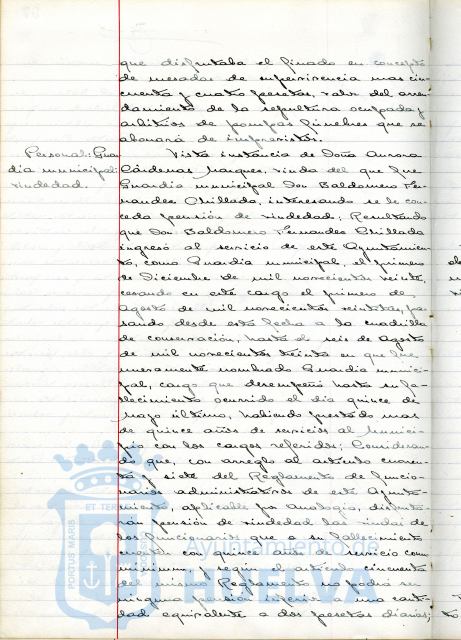 que disfrutaba el finado en concepto
de mesadas de supervivencia mas cin-
cuenta y cuatro pesetas, valor del arren-
damiento de la sepultura ocupada y
arbitrios de pompas fúnebres que se
abonará de imprevistos.
Personal: Guar-
dia municipal:
viudedad.
Vista instancia de Doña Aurora
Cárdenas Marques, viuda del que fue
Guardia municipal Don Baldomero Fer-
nandez Chillada, interesando se le con-
ceda pensión de viudedad; Resultando
que Don Baldomero Fernandez Chillada
ingresó al servicio de este Ayuntamien-
to, como Guardia municipal, el primero
de Diciembre de mil novecientos veinte,
cesando en este cargo el primero de
Agosto de mil novecientos veintitres, pa-
sando desde esta fecha a la cuadrilla
de conservación, hasta el seis de Agosto
de mil novecientos treinta en que fue
nuevamente nombrado Guardia munici-
pal, cargo que desempeñó hasta su fa-
llecimiento ocurrido el día quince de
Mayo último, habiendo prestado mas
de quince años de servicios al Munici-
pio con los cargos referidos; Consideran-
do que, con arreglo al artículo cuaren-
ta y siete del Reglamento de funcio-
narios administrativos de este Ayunta-
miento, aplicable por analogía, disfruta-
rán pensión de viudedad las viudas de
los funcionarios que a su fallecimiento
cuenten con quince años de servicio como
minimum, y según el artículo cincuenta
del mismo Reglamento no podrá ser
ninguna pensión inferior a una canti-
dad equivalente a dos pesetas diarias;
PORTUS MARIS
ET TER
Ayuntamiento de
HUELVA